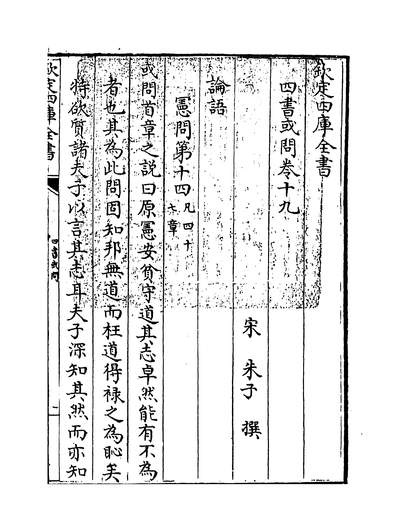 欽定四庫全書
四書或問卷十九
宋 朱子 撰
論語
憲問第十四凡四十六章
或問首章之說曰原憲安貧守道其志卓然能有不為
者也其為此問固知邦無道而枉道得祿之為恥矣
特欲質諸夫子以言其志耳夫子深知其然而亦知
欽定四庫全書
四書或問
一